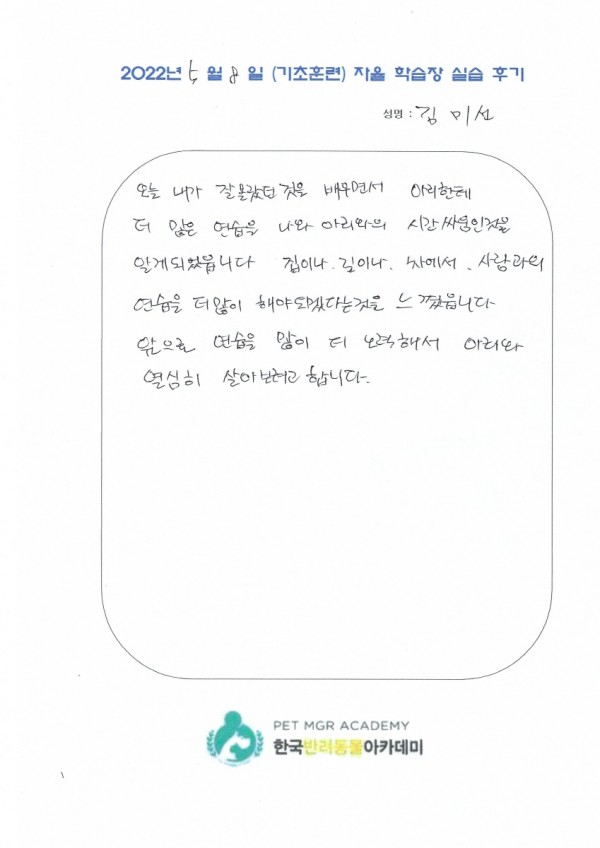 2022년 5월 8일 (기초훈련) 자율 학습장 실습 후기
성명 : 김미선
오늘 내가 잘몰랐던것을 배우면서 아리한테
더 많은 연습을 나와 아리와의 시간싸움인것을
알게되었읍니다 집이나. 길이나. 차에서. 사람과의
연습을 더많이 해야되겠다는것을 느꼈읍니다
앞으로 연습을 많이 더 노력해서 아리와
열심히 살아보려고 합니다.
PET MGR ACADEMY
한국반려동물아카데미